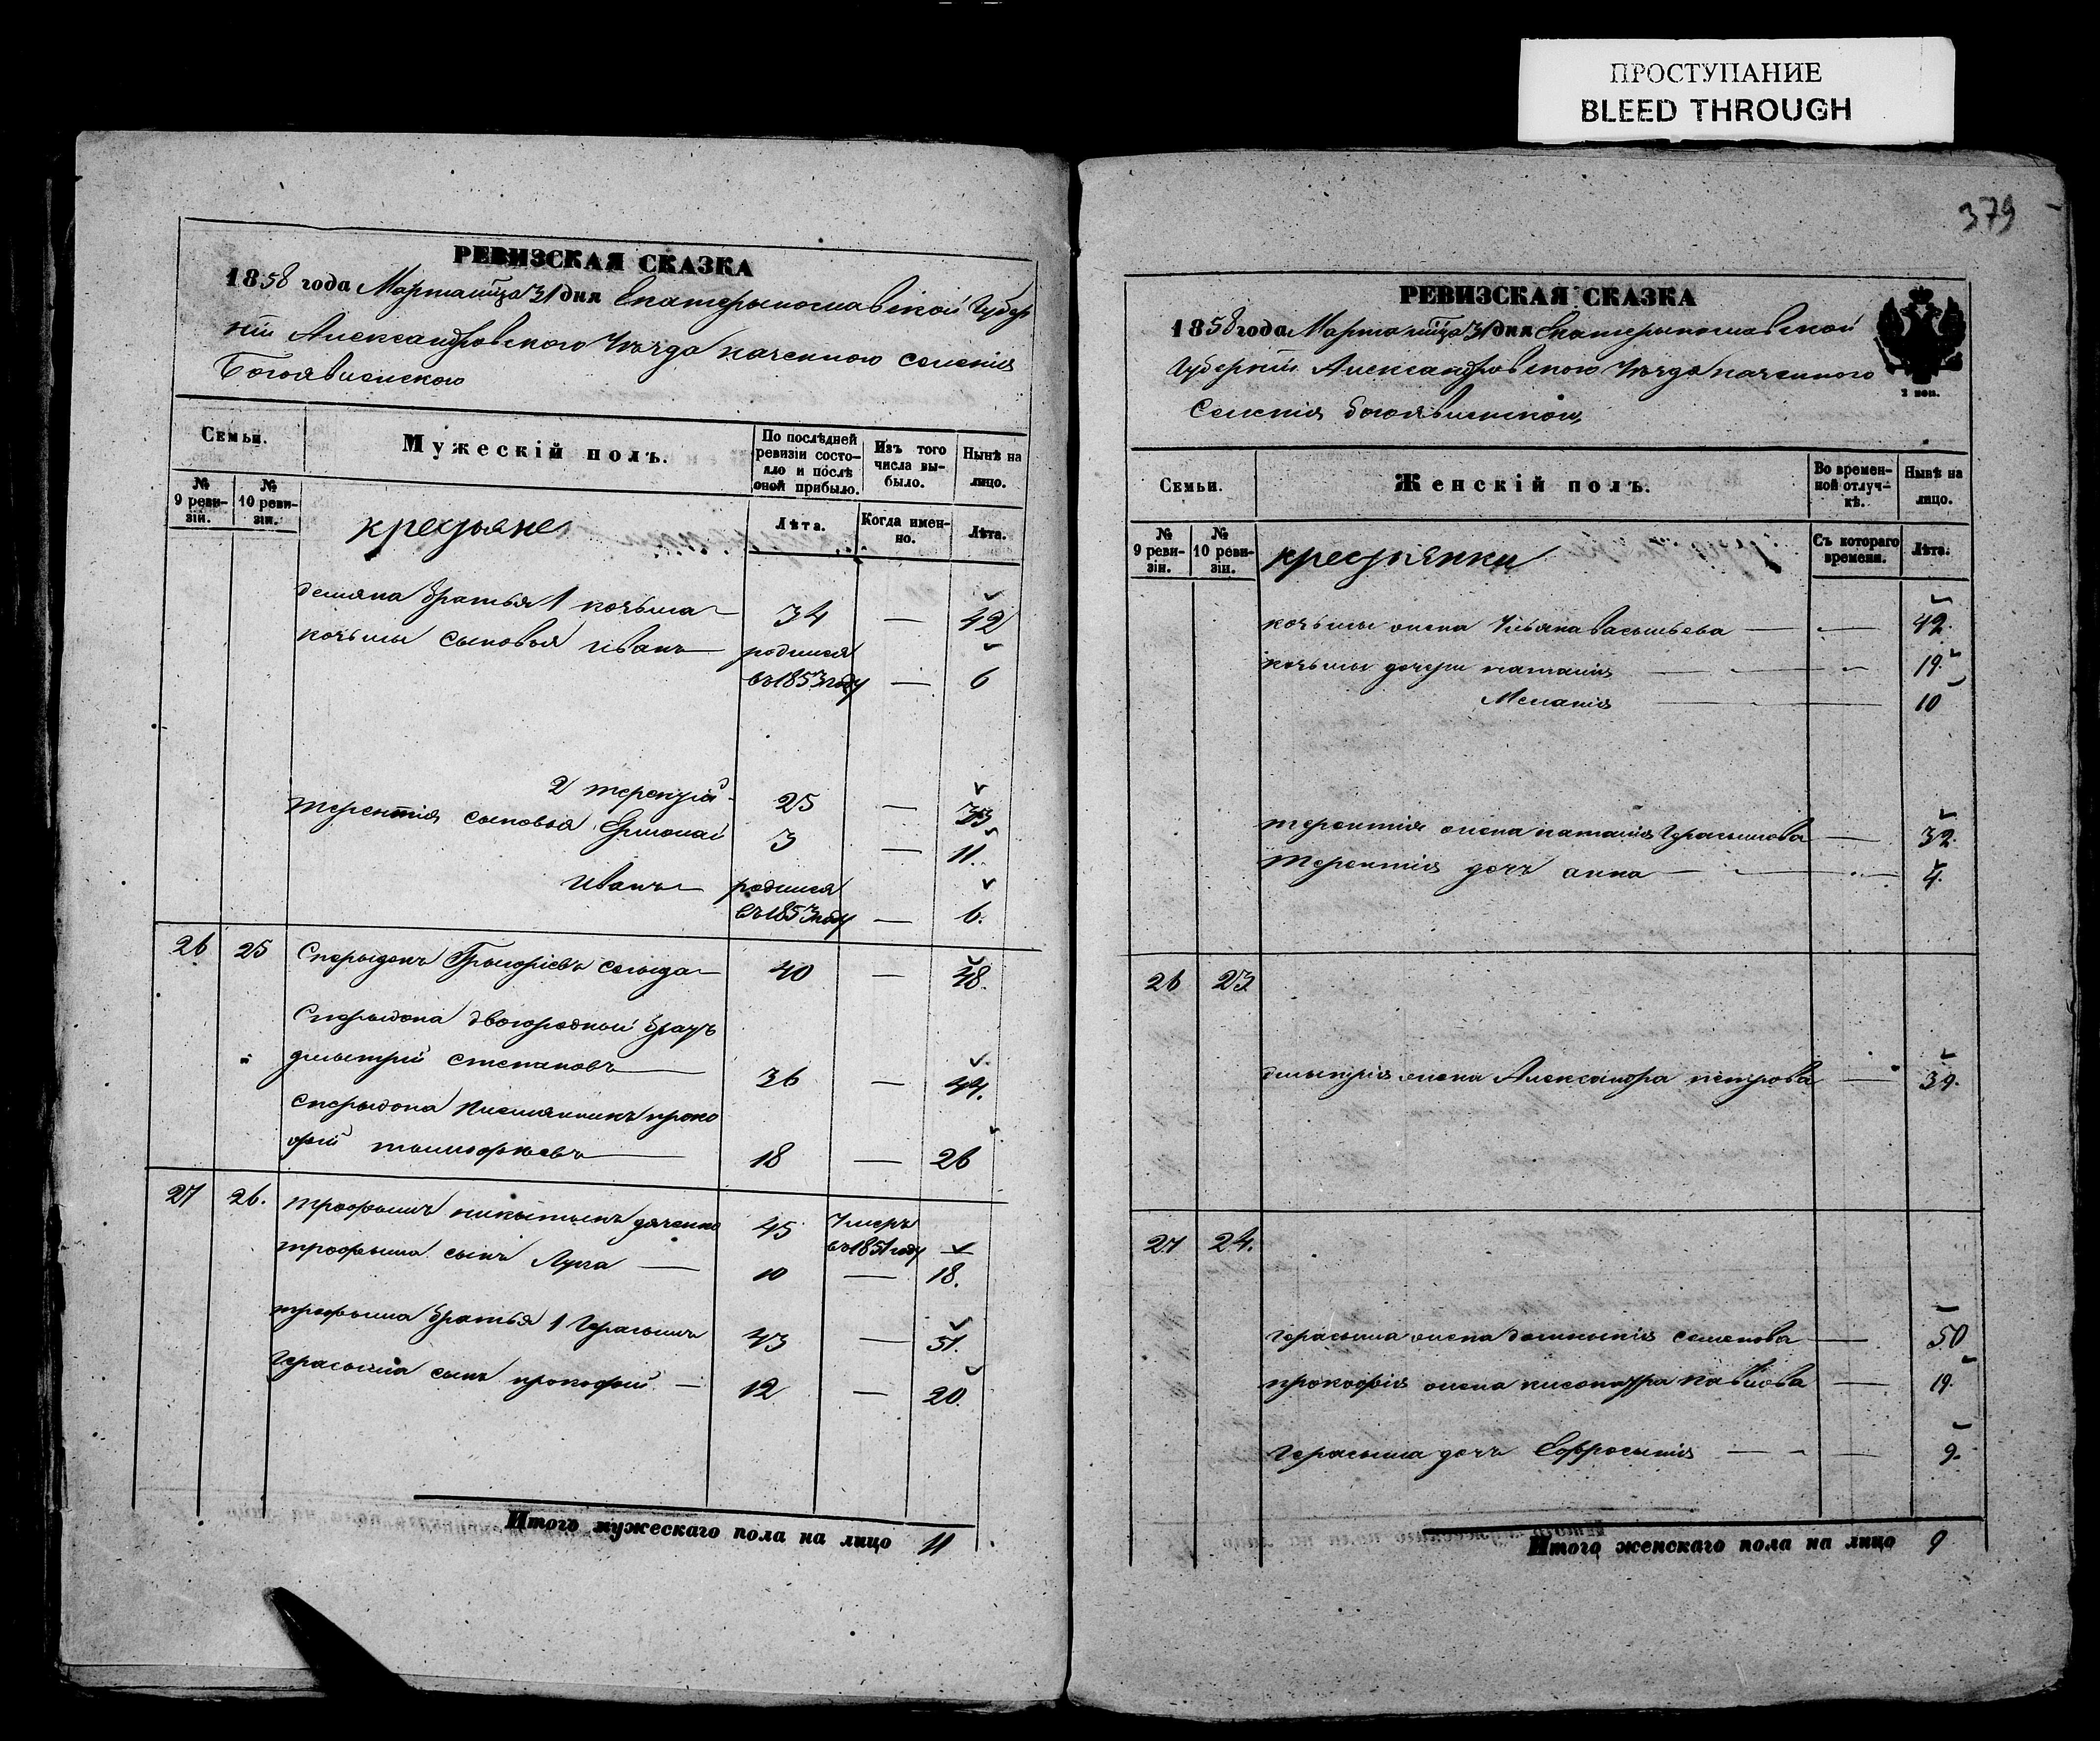 ПРОСТУПАНИЕ
BLEED THROUGH
379
РЕВИЗСКАЯ СКАЗКА
1858 года Марта мца 31 дня Екатерынославской Губер
ніи Александровского Уезда казенного селенія
Богоявленского
Семьи.
Мужескій полъ.
По послѣдней ревизіи состояло и послѣ оной прибыло.
Изъ того числа выбыло.
Нынѣ на лицо.
№ 9 ревизіи.
№ 10 ревизіи.
крестьяне
Лѣта.
Когда именно.
Лѣта.
демяна братья 1 козьма 34 — 42
козьмы сыновья иванъ родился
въ 1853 году — 6
2 терентій 25 — 33
терентія сыновья Ермолай 3 — 11.
иванъ родился
въ 1853 году — 6.
26 25 Сперыдонъ Грыгоріевъ 40 — 48.
Сперыдона двоюродный братъ
дмытрій степановъ 36 — 44.
сперыдона племянникъ проко
фій тымофіевъ 18 — 26
27 26. трофымъ никытынъ дяченко 45 Умеръ
въ 1851 году —
трофыма сынъ Лука — 10 — 18.
трофыма братья 1 Герасымъ 43 — 51.
Герасыма сынъ прокофій — 12 — 20.
Итого мужескаго пола на лицо 11
РЕВИЗСКАЯ СКАЗКА
1858 года Марта мца 31 дня Екатерынославской
Губерніи Александровского Уезда казенного
Селенія богоявленского
3 коп.
Семьи.
Женскій полъ.
Во временной отлучкѣ.
Нынѣ на лицо.
№ 9 ревизіи.
№ 10 ревизіи.
крестьянки
Съ котораго времени.
Лѣта.
козьмы жена Ульяна васыльева — — 42.
козьмы дочери наталія — — 19.
Меланія — — 10
терентія жена наталія Герасымова — 32.
терентія дочь анна — — 4.
26 23
дмытрія жена Александра петрова — 39.
27 24.
герасыма жена домникія семенова — 50
прокофія жена клеопатра павлова — 19.
герасыма дочь Ефросынія — — 9.
Итого женскаго пола на лицо 9